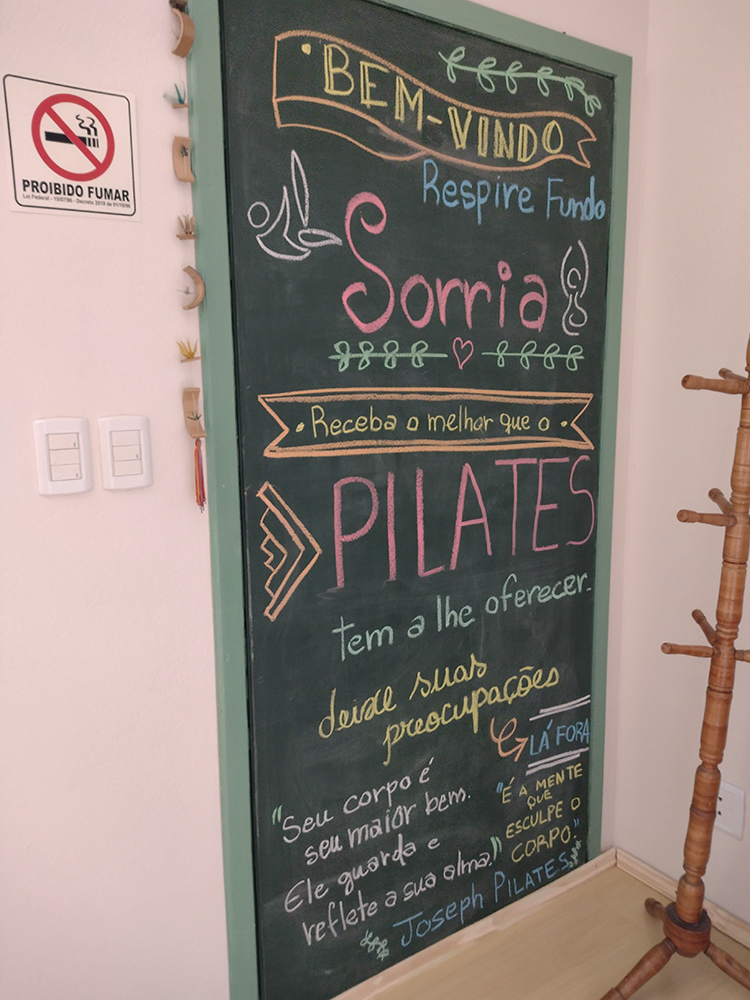 PROIBIDO FUMAR
Lei Federal - 15/07/96 - Decreto 2018 de 01/10/96
BEM-VINDO
Respire Fundo
Sorria
Receba o melhor que o
PILATES
tem a lhe oferecer.
deixe suas
preocupações
LÁ FORA
"Seu corpo é
seu maior bem.
Ele guarda e
reflete a sua alma."
"É A MENTE
QUE
ESCULPE O
CORPO."
Joseph PILATES